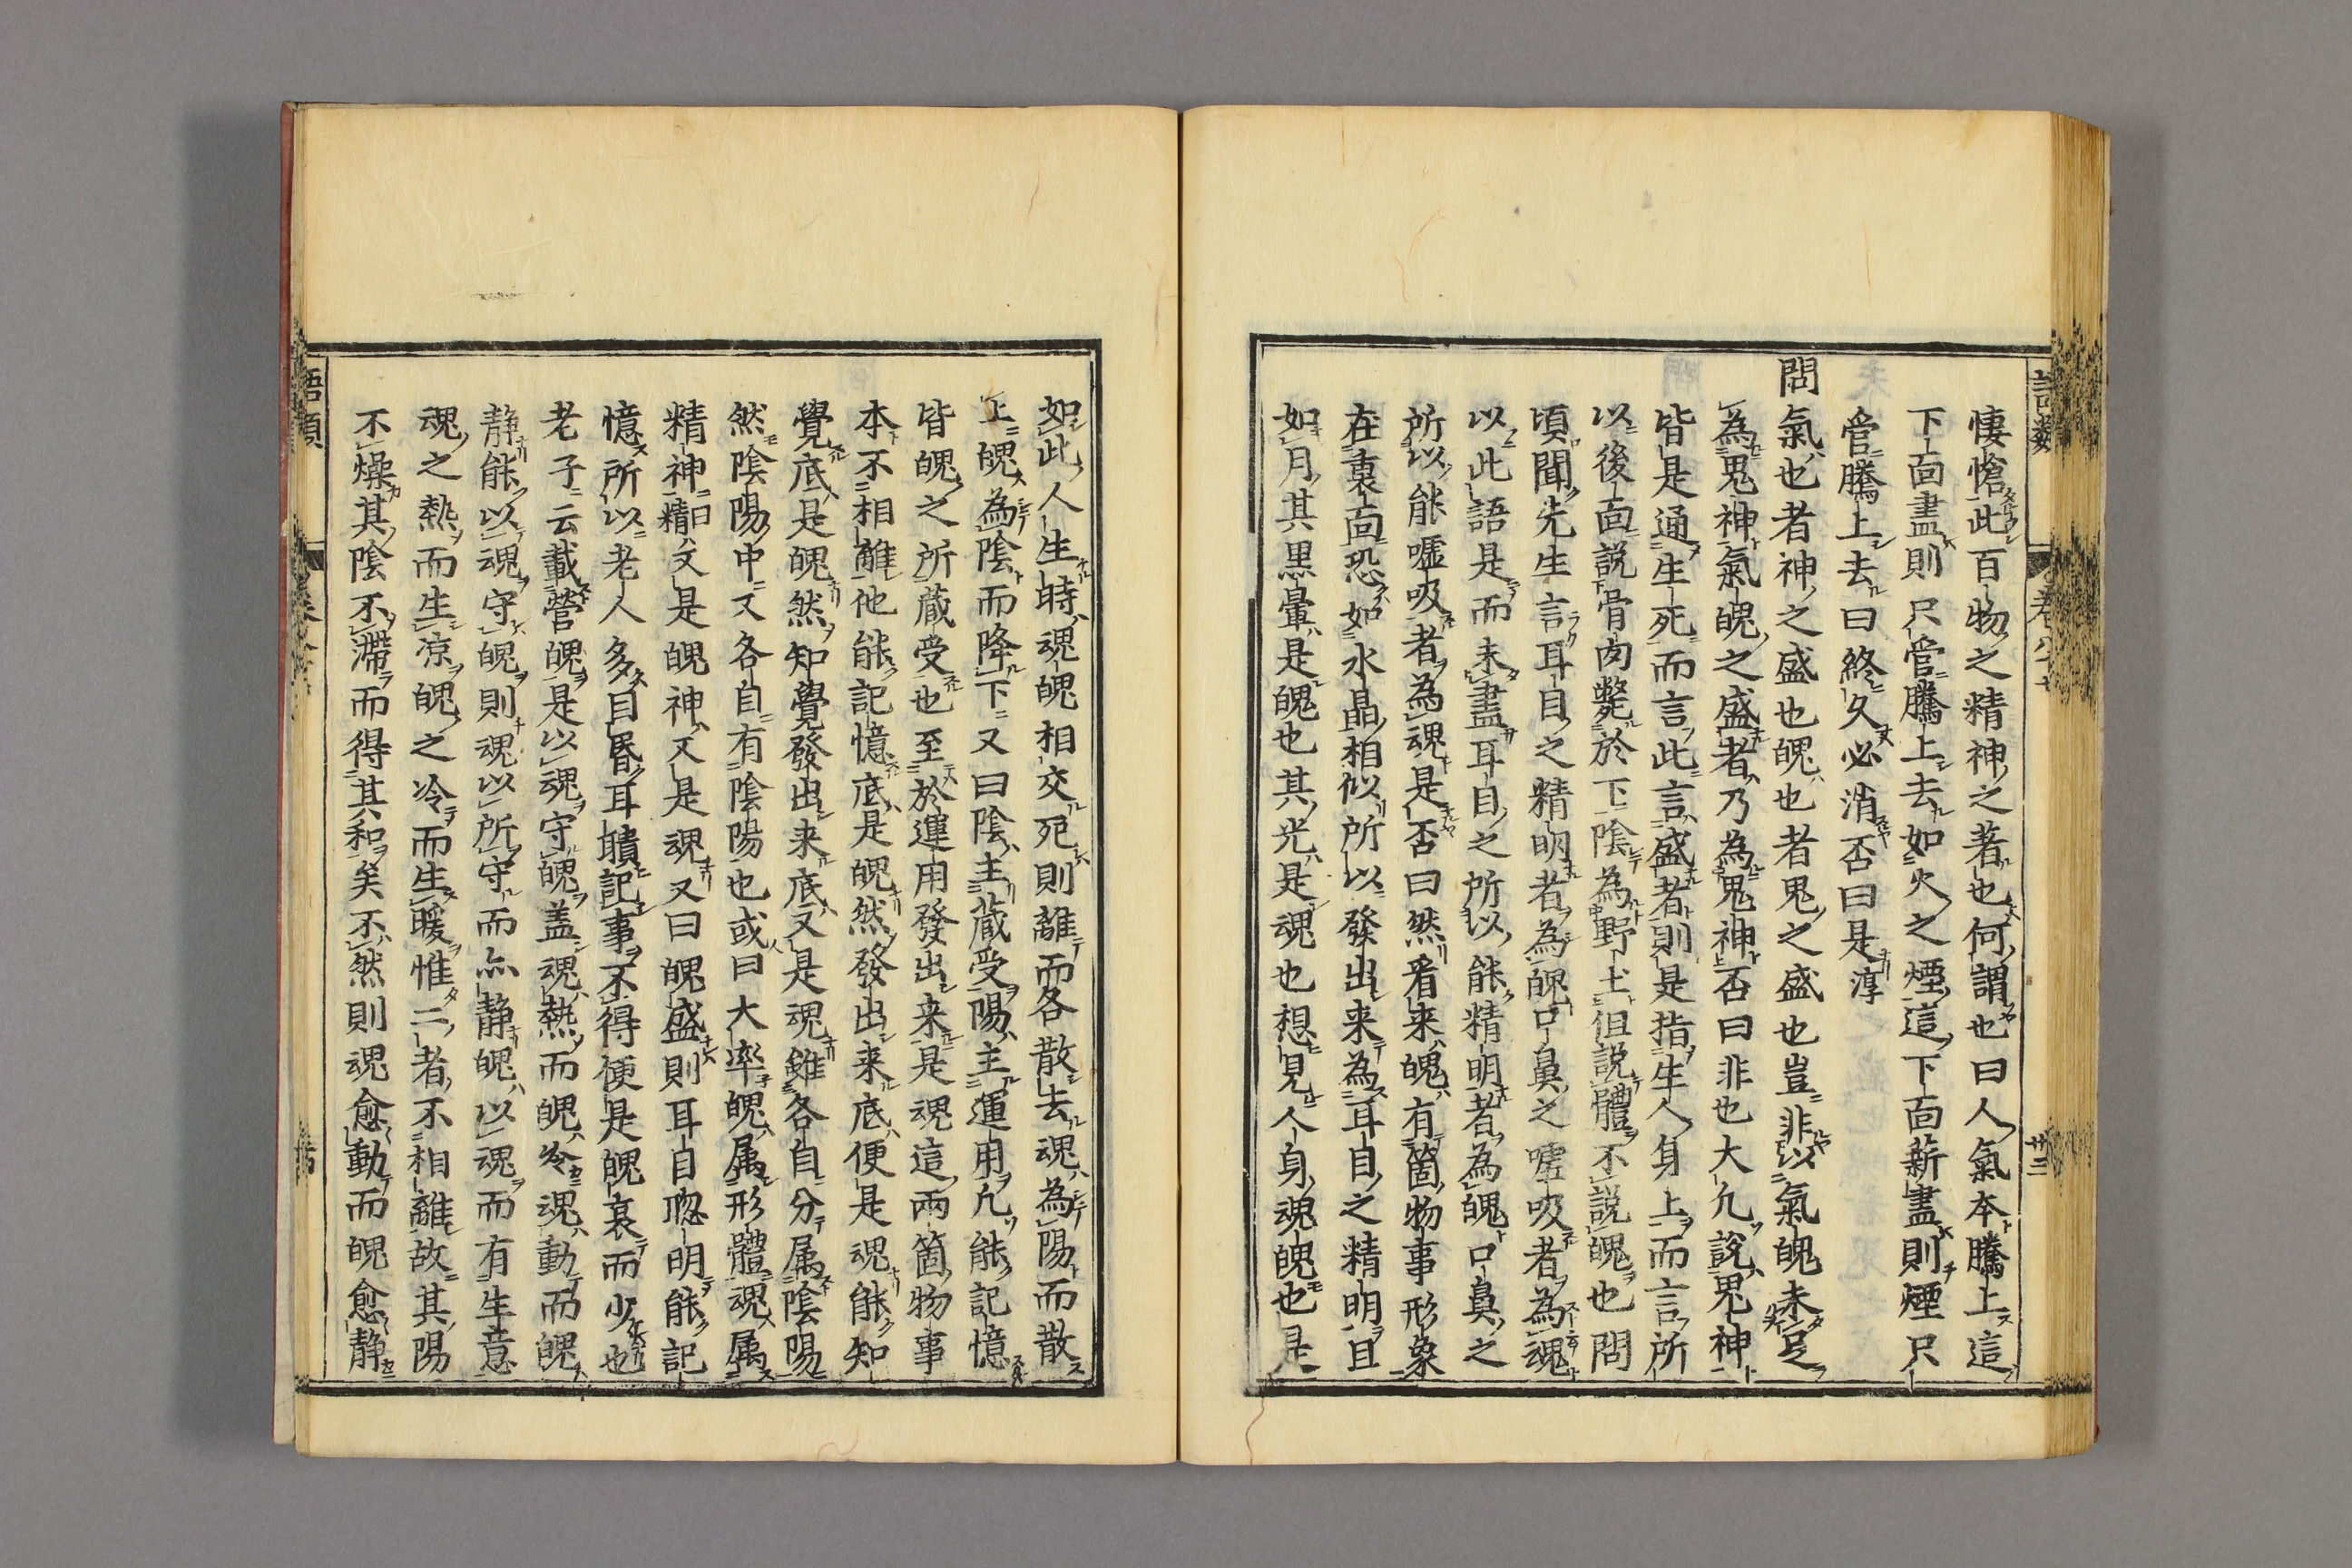 悽愴此百物之精神之著也何謂也曰人氣本騰上這
下面盡則只管騰上去如火之煙這下面薪盡則煙只
管騰上去曰終久必消否曰是淳
問氣也者神之盛也魄也者鬼之盛也豈非以氣魄未足
為鬼神氣魄之盛者乃為鬼神否曰非也大凢說鬼神
皆是通生死而言此言盛者則是指生人身上而言所
以後面説骨肉斃於下陰為野土但説體不説魄也問
頃聞先生言耳目之精明者為魄口鼻之噓吸者為魂
以此語是而未盡耳目之所以能精明者為魄口鼻之
所以能噓吸者為魂是否曰然看来魄有箇物事形象
在裏面恐如水晶相似所以發出来為耳目之精明且
如月其黒暈是魄也其光是魂也想見人身魂魄也是
如此人生時魂魄相交死則離而各散去魂為陽而散
上魄為陰而降下又曰陰主蔵受陽主運用凢能記憶
皆魄之所蔵受也至於運用發出来是魂這兩箇物事
本不相離他能記憶底是魄然發出来底便是魂能知
覺底是魄然知覺發出来底又是魂雖各自分属陰陽
然陰陽中又各自有陰陽也或曰大率魄属形體魂属
精神曰精又是魄神又是魂又曰魄盛則耳目聦明能記
憶所以老人多目昏耳聵記事不得便是魄衰而少也
老子云載營魄是以魂守魄盖魂熱而魄冷魂動而魄
静能以魂守魄則魂以所守而亦静魄以魂而有生意
魂之熱而生凉魄之冷而生暖惟二者不相離故其陽
不燥其陰不滯而得其和矣不然則魂愈動而魄愈静
語類
卷八十七
廿三